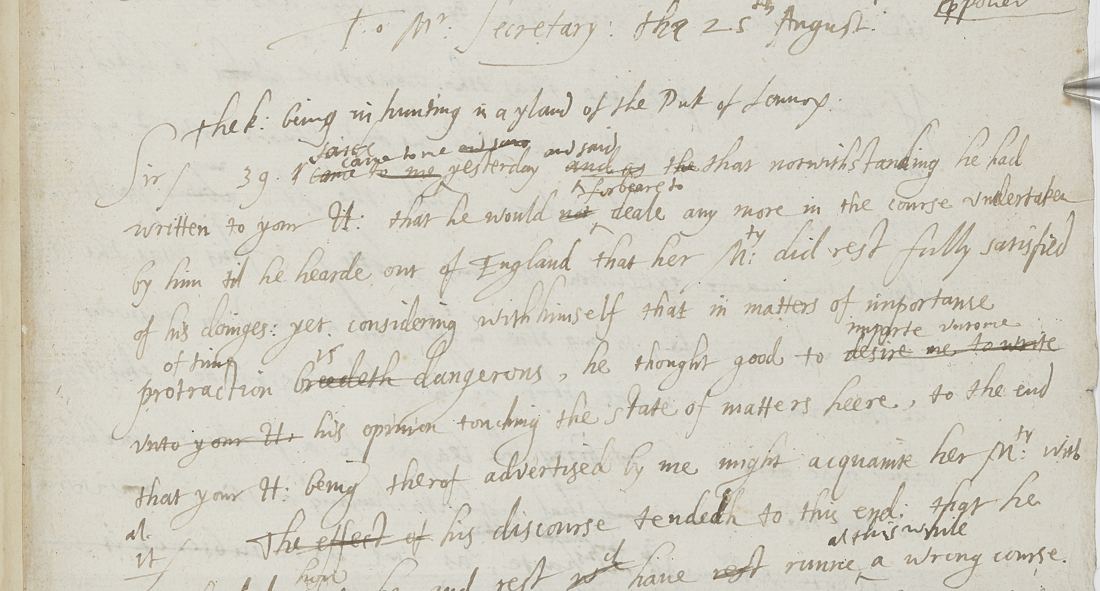 To Mr. Secretary: the 25th August.
the k: being in hunting in a yland of the Duk of Lennox.
came to me and said
Sir / 39. came to me yesterday and as the that notwithstanding he had
forbeare to
written to your H: that he would not deale any more in the course undertaken
by him til he hearde out of England that her M:ty did rest fully satisfied
of his doinges: yet considering with himself that in matters of importanse
of time is imparte unto me
protraction breedeth dangerous, he thought good to desire me to write
unto your H. his opinion touching the state of matters heere, to the end
that your H: being therof advertised by me might acquainte her M:ty with
at.
it / The effect of his discourse tendeth to this end, that he
al this while
and rest have rest runne a wrong course.